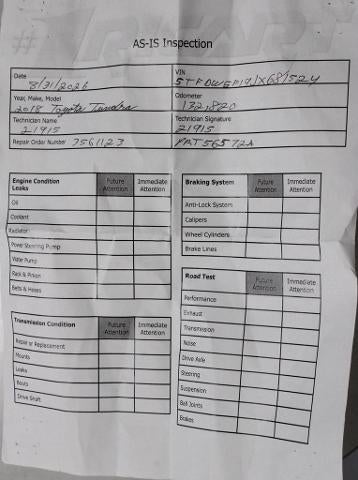 AS-IS Inspection
Date 8/31/2026
VIN
Year, Make, Model
2018 Toyota Tundra
Odometer
132,820
Technician Name
21915
Technician Signature
21915
Repair Order Number 3561123
Engine Condition Future Attention Immediate Attention
Leaks
Oil
Coolant
Radiator
Power Steering Pump
Water Pump
Rack & Pinion
Belts & Hoses
Transmission Condition Future Attention Immediate Attention
Repair or Replacement
Mounts
Leaks
Boots
Drive Shaft
Braking System Future Attention Immediate Attention
Anti-Lock System
Calipers
Wheel Cylinders
Brake Lines
Road Test Future Attention Immediate Attention
Performance
Exhaust
Transmission
Noise
Drive Axle
Steering
Suspension
Ball Joints
Brakes